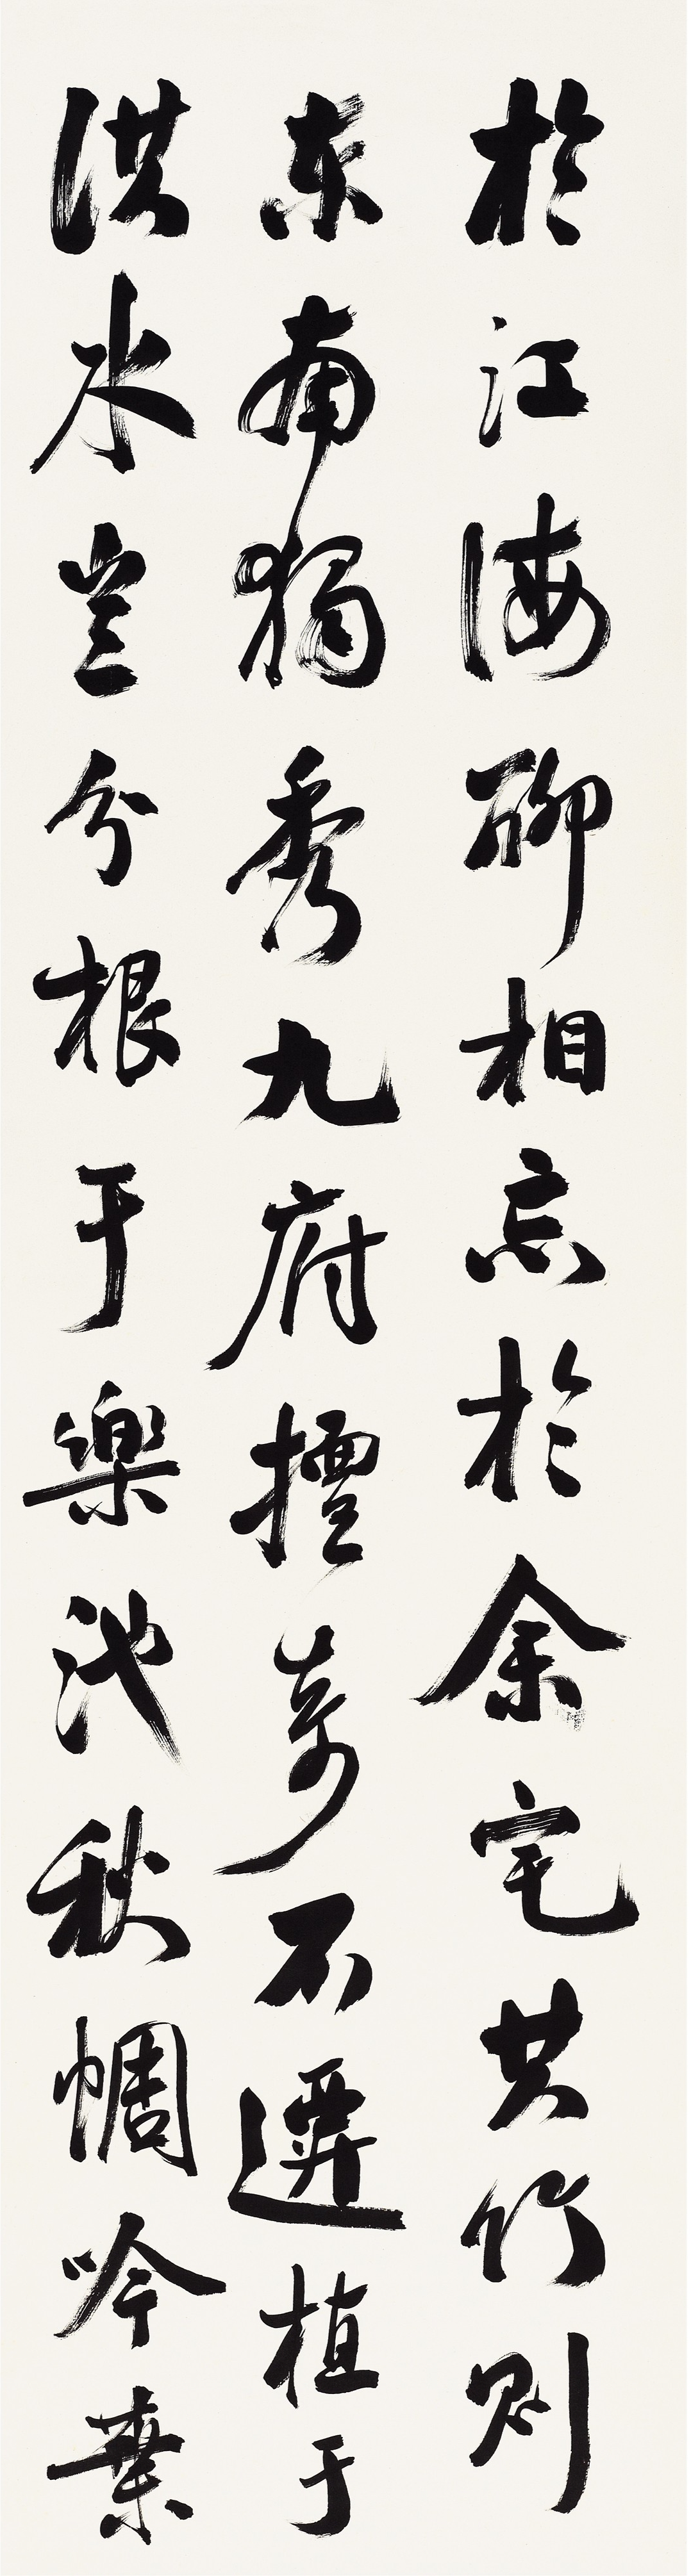 於江海聊相忘於余宅共竹則
東南獨秀九府擅奇不遷植于
淇水豈分根于樂池秋惆吟葉